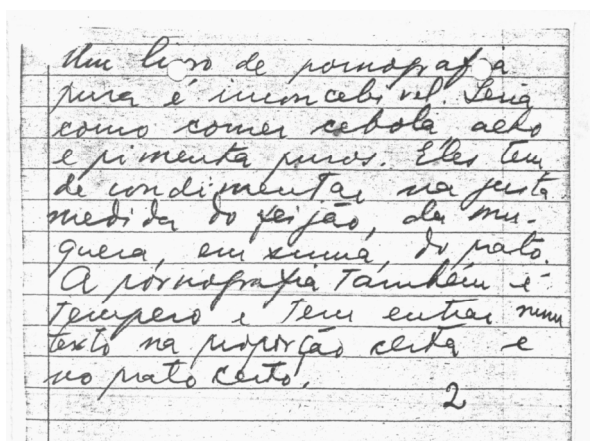 Um livro de pornografia
pura é inconcebível. Seria
como comer cebola, alho
e pimenta puros. Eles tem
de condimentar na justa
medida do feijão, da mu-
queca, em suma, do prato.
A pornografia também é
tempero e tem entrar num
texto na proporção certa e
no prato certo.
2